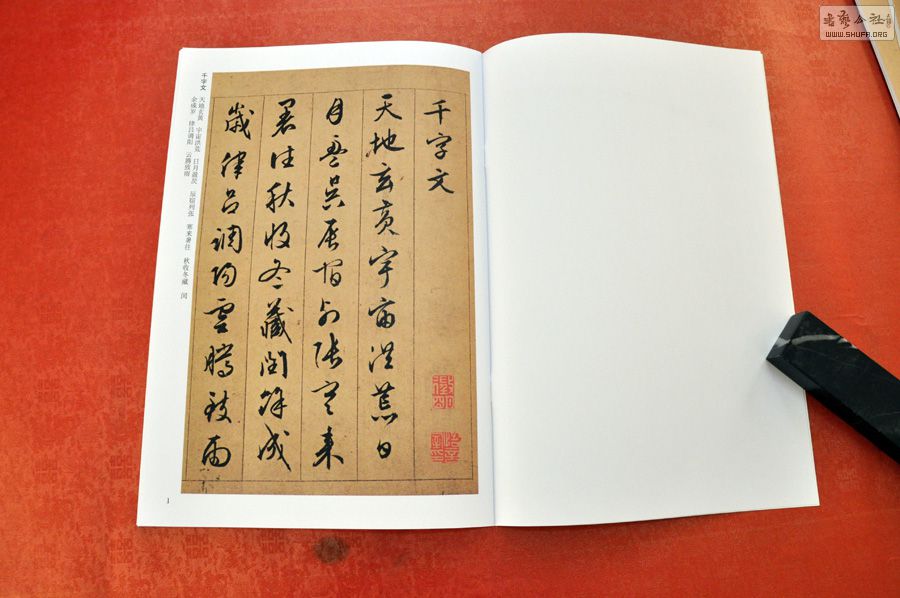 千字文
天地玄黃宇宙洪荒日
月盈昃辰宿列張寒來
暑往秋收冬藏閏餘成
歲律呂調陽雲騰致雨
千字文
天地玄黄 宇宙洪荒 日月盈昃 辰宿列张 寒来暑往 秋收冬藏 闰
余成岁 律吕调阳 云腾致雨
1
書藝公社
WWW.SHUFA.ORG